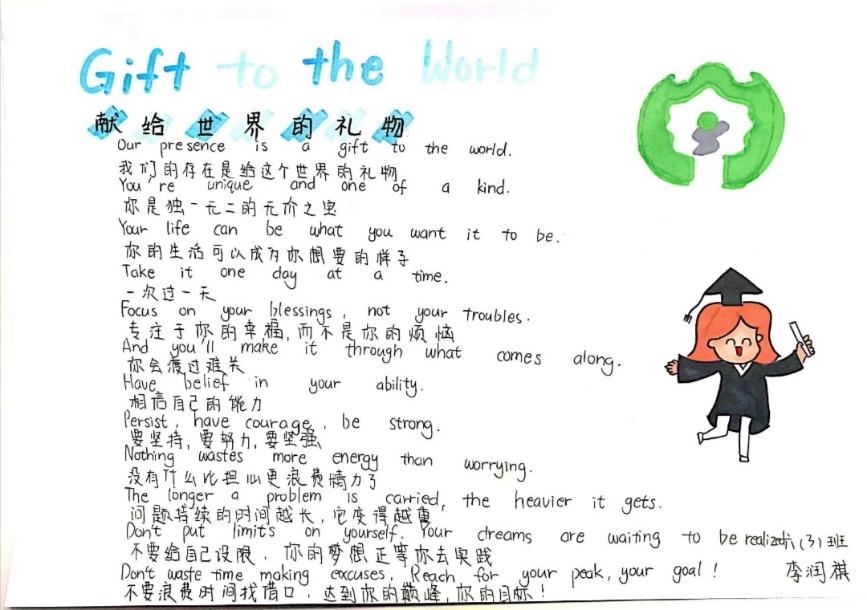 Gift to the World
献给世界的礼物
Our presence is a gift to the world.
我们的存在是给这个世界的礼物
You're unique and one of a kind.
你是独一无二的无价之宝
Your life can be what you want it to be.
你的生活可以成为你想要的样子
Take it one day at a time.
一次过一天
Focus on your blessings, not your troubles.
专注于你的幸福,而不是你的烦恼
And you'll make it through what comes along.
你会渡过难关
Have belief in your ability.
相信自己的能力
Persist, have courage, be strong.
要坚持,要努力,要坚强
Nothing wastes more energy than worrying.
没有什么比担心更浪费精力了
The longer a problem is carried, the heavier it gets.
问题持续的时间越长,它变得越重
Don't put limits on yourself. Your dreams are waiting to be realized. 六(3)班
不要给自己设限,你的梦想正等你去实践
Don't waste time making excuses, Reach for your peak, your goal! 李润祺
不要浪费时间找借口,达到你的巅峰,你的目标!